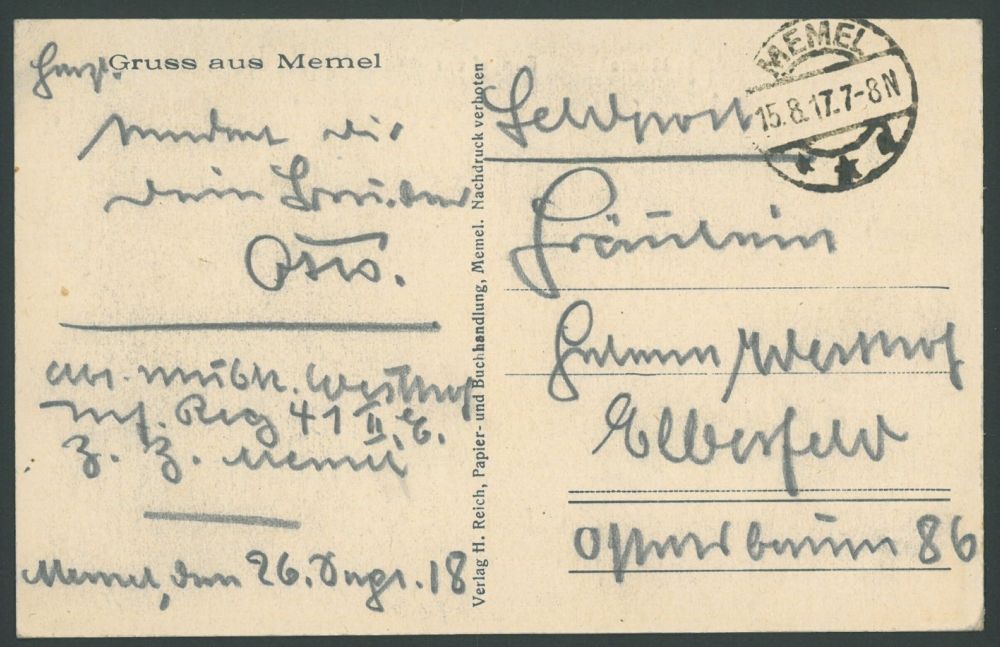 Gruss aus Memel
Herzl.
sendet dir
dein Bruder
Otto.
Abs. Musk. Westhof
Inf. Reg 41 II. E.
Z. Z. Memel
Memel, den 26. 18
Verlag H. Reich, Papier- und Buchhandlung, Memel. Nachdruck verboten
MEMEL
15.8.17.7-8N
Feldpost
Fräulein
Helene Westhof
Elberfeld
86